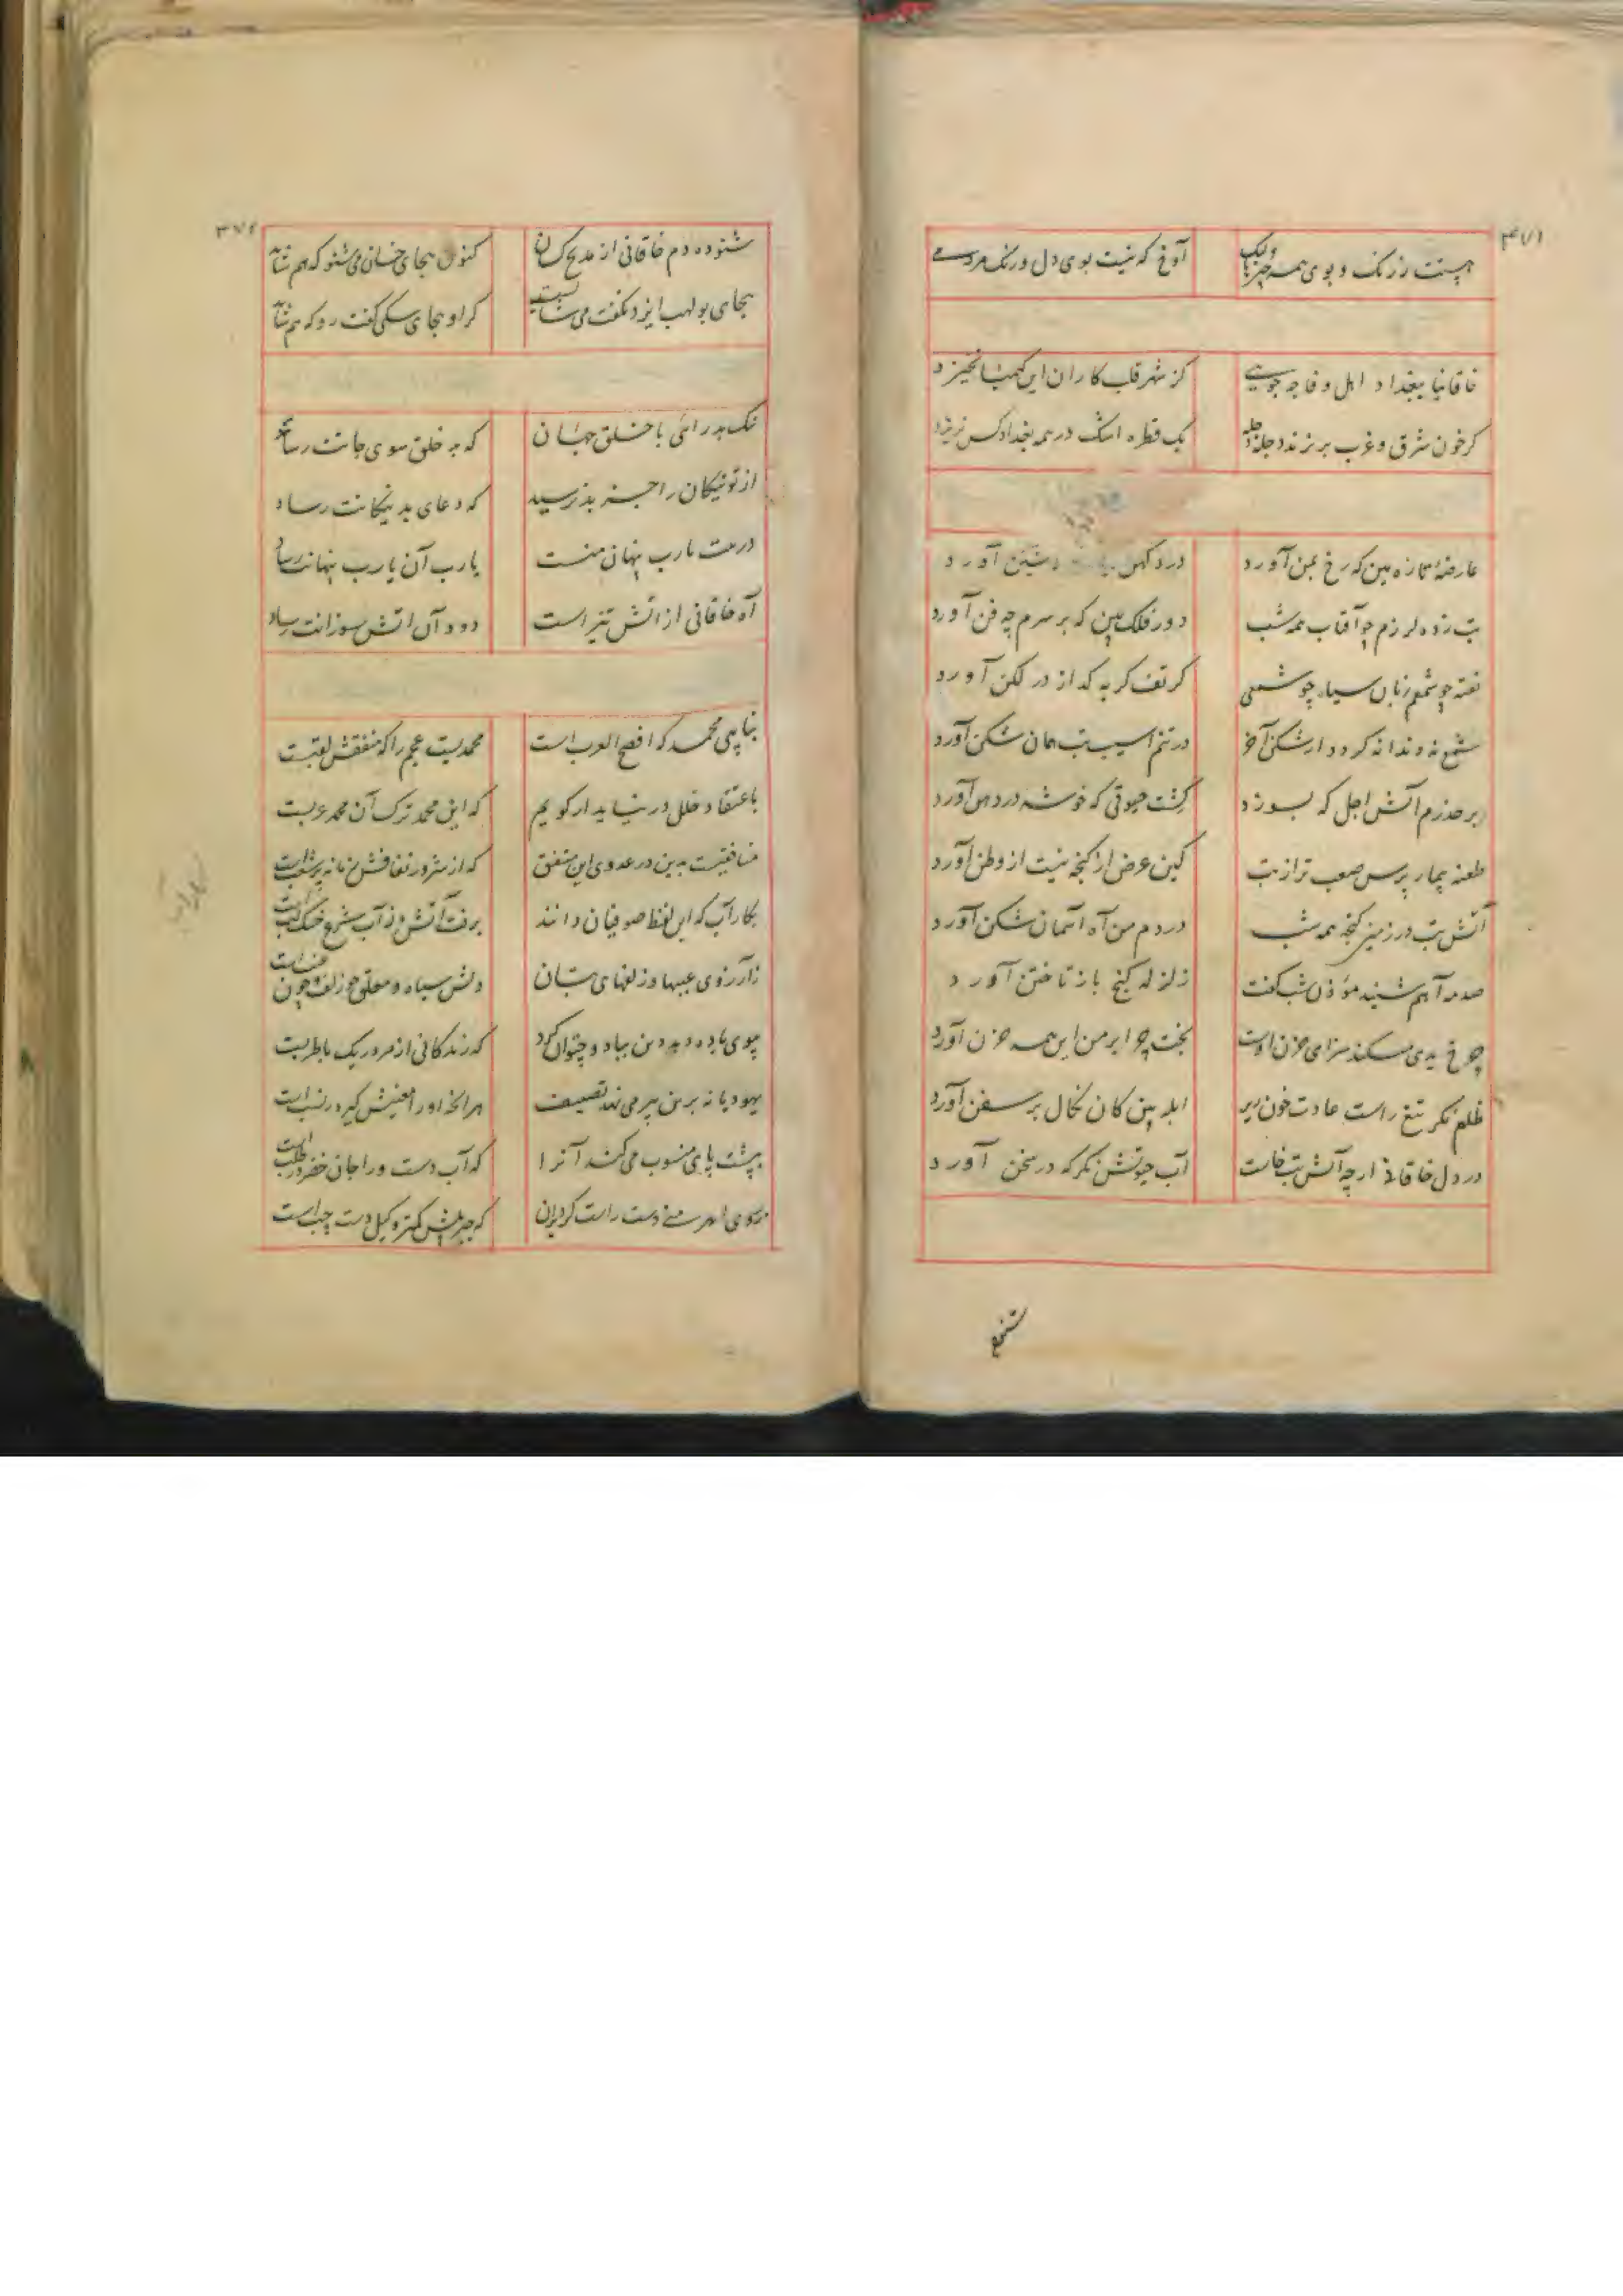 ۳۷۱
هست ز رنگ و بوی همه چیزها ولیک آوخ که نیست بوی دل و رنگ مردمی
خاقانیا ببغداد اهل وفا چه جویی کز شهر قلب کاران این کیمیا نخیزد
کر خون شرق و غرب بریزند دجله دجله یک قطره اشک در همه بغداد کس نریزد
عارضهٔ تازه بین که رخ بمن آورد درد کهن آورد
تب زده لرزم چو آفتاب همه شب دور فلک بین که بر سرم چه فن آورد
تفته چو شمعم زبان سیاه چو شمعی کز تف کریه کداز در لکن آورد
شمع نه دندانه کردد ار شکن آخر در تنم آسیب تب همان شکن آورد
بر حذرم آتش اجل که بسوزد کشت حیوتی که خوشه در دهن آورد
طعنه بیمار پرس صعب تر از تب کین عرض از کنجه نیست از وطن آورد
آتش تب در زمین کنجه همه شب در دم من آه آسمان شکن آورد
صدمه آهم شنید مؤذن شب کفت زلزله کنج باز تاختن آورد
چرخ بدی میکند سزای حزن اوست بخت چرا بر من این همه حزن آورد
ظلم نکر تیغ راست عادت خون ریز ابله بین کان نکال بر سفن آورد
در دل خاقانی ار چه آتش تب خاست آب حیوتش نکر که در سخن آورد
شنوده
۳۷۲
شنوده دم خاقانی از مدیح کسان کنون هجای خسان می شنو که هم شاید
بجای بولهب ایزد نکفت می کر او هجای سکی کفت رو که هم شاید
با خلق جهان که به خلق سوی جانت رساد
از تو نیکان را بد نرسید که دعای بد نیکانت رساد
یارب پنهان منست یارب آن یارب پنهانت رساد
آه خاقانی از آتش تیز است دود آن آتش سوزانت رساد
بنا پی محمد که افصح العرب است محمدیست عجم را که منفقش لقبست
باعتقاد خلل در نیاید ار کویم که این محمد ترک آن محمد عربست
منافقیست بدین در عدوی این متفق که از شرور نفاقش زمانه پر شغب است
بکار آب که این لفظ صوفیان دانند برفت آتش و ز آب شرع خشک لب است
ز آرزوی عیبها و زلفهای بتان دلش سیاه و معلق چو زلف چون عنب است
ببوی باده دهد دین بباد و چتوان کرد که زندکانی از مرد ریک با طربست
یهودیانه برین پیر می نهد تضعیف
بپشت پای منسوب می کند آنرا که آب دست ورا جان خضر در طلب است
ز روی دست راست کرد بدان که جبرئیلش کمتر وکیل دست چپ است